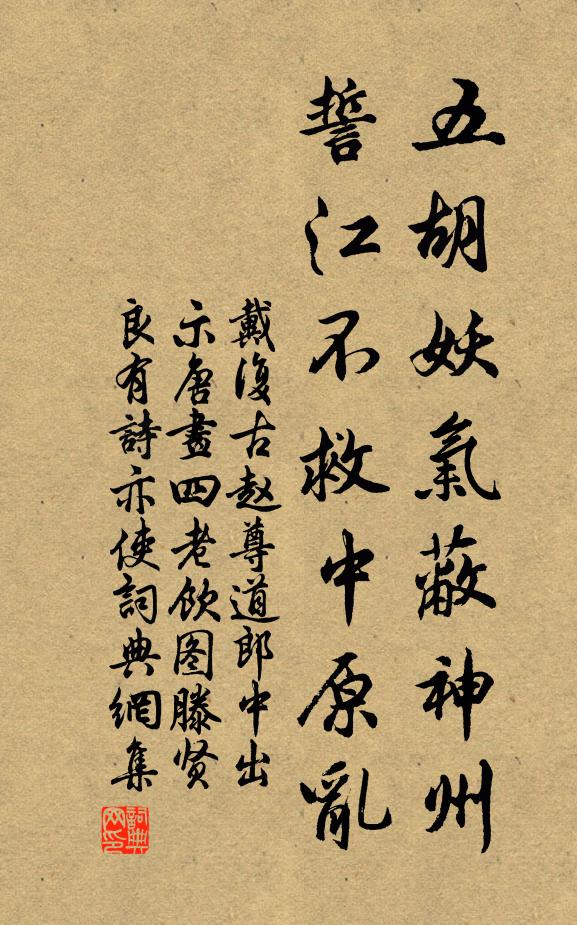 五胡妖氣蔽神州
誓江不救中原亂
戴復古赵尊道郎中出
示唐畫四老飲图滕贤
良有詩亦使詞典網集
詞典
网印